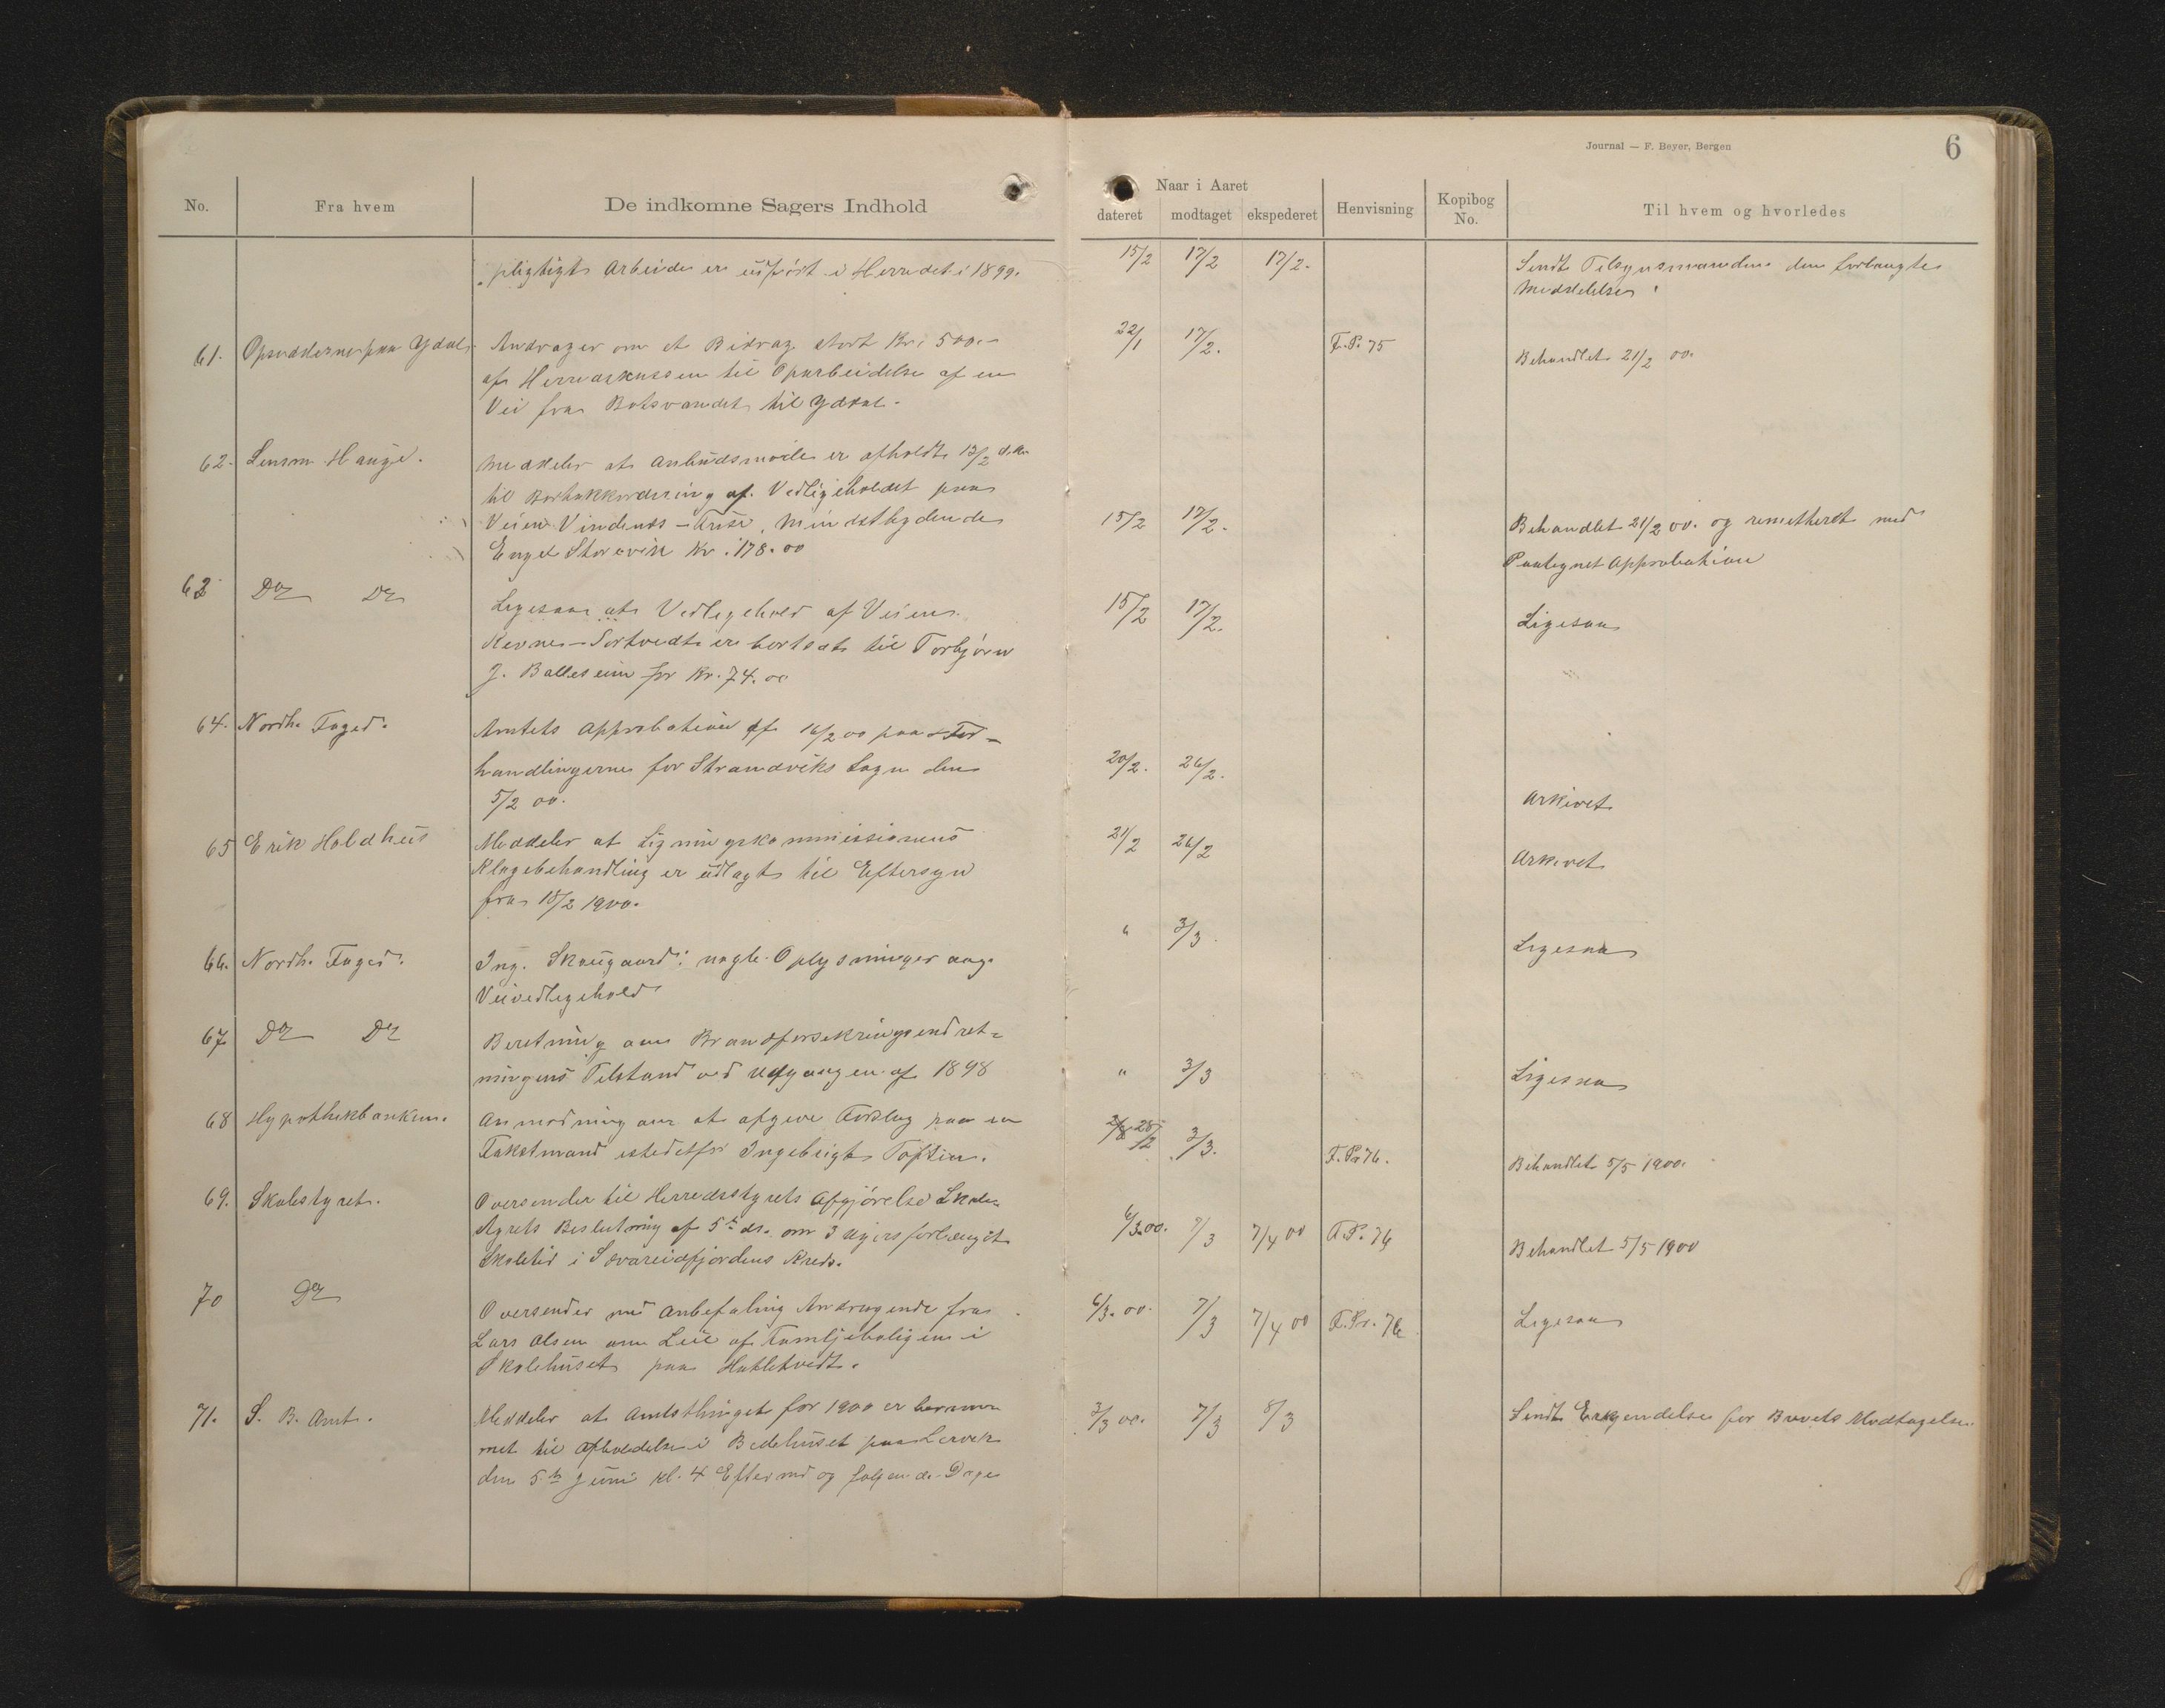 Journal — F. Beyer, Bergen
6
No.
Fra hvem
De indkomne Sagers Indhold
Naar i Aaret
dateret
modtaget
ekspederet
Henvisning
Kopibog
No.
Til hvem og hvorledes
pligtigt Arbeide er udført i Herredet i 1899.
15/2 17/2 17/2.
Sendt Tilsynsmanden den forlangte
Meddelelse
61. Opsidderne paa Ydal
Andrager om et Bidrag stort Kr. 500.-
af Herredskassen til Oparbeidelse af en
Vei fra Botsvandet til Ydal.
22/1 17/2. F.P. 75
Behandlet 21/2 00.
62. Lensm. Hauge.
Meddeler at Anbudsmøde er afholdt 13/2 d.A.
til Bortakkordering af Vedligeholdet paa
Veien Vindenes - Mindstbydende
Engel Storevik Kr. 178.00
15/2 17/2.
Behandlet 21/2 00. og remitteret med
Paategnet Approbation
63 Do Do
Ligesaa at Vedligehold af Veien
Revne - Sortvedt er bortsat til Torbjørn
J. Balleseim for Kr. 74.00
15/2 17/2.
Ligesaa
64. Nordh. Foged.
Amtets Approbation af 16/2 00 paa For-
handlingerne for Strandviks Sogn den
5/2 00.
20/2. 26/2.
Arkivet
65 Erik Holdhus
Meddeler at Ligningskommissionens
Klagebehandling er udlagt til Eftersyn
fra 15/2 1900.
21/2 26/2
Arkivet
66. Nordh. Foged.
Ing. Skougaard: nogle Oplysninger ang.
Veivedligehold
" 3/3.
Ligesaa
67 Do Do
Beretning om Brandforsekringsindret-
ningens Tilstand ved Udgangen af 1898
" 3/3
Ligesaa
68 Hypothekbanken.
Anmodning om at afgive Forslag paa en
Takstmand istedetfor Ingebrigt Toften.
28/2 3/3. F.P. 76.
Behandlet 5/5 1900.
69. Skolestyret.
Oversender til Herredsstyrets Afgjørelse Skole-
styrets Beslutning af 5te ds. om 3 Ugers forlænget
Skoletid i Sævareidfjordens Kreds.
6/3.00. 7/3 7/4 00 F.P. 76
Behandlet 5/5 1900
70 Do
Oversender med Anbefaling Andragende fra
Lars Olsen om Leie af Familjeboligen i
Skolehuset paa Hatletvedt.
6/3.00. 7/3 7/4 00 F.Pr. 76
Ligesaa
71. S. B. Amt.
Meddeler at Amtsthinget for 1900 er beram-
met til Afholdelse i Bedehuset paa Lervik
den 5te Juni kl. 4 Eftermd og følgende Dage
3/3 00. 7/3 8/3
Sendt Erkjendelse for Brevets Modtagelse